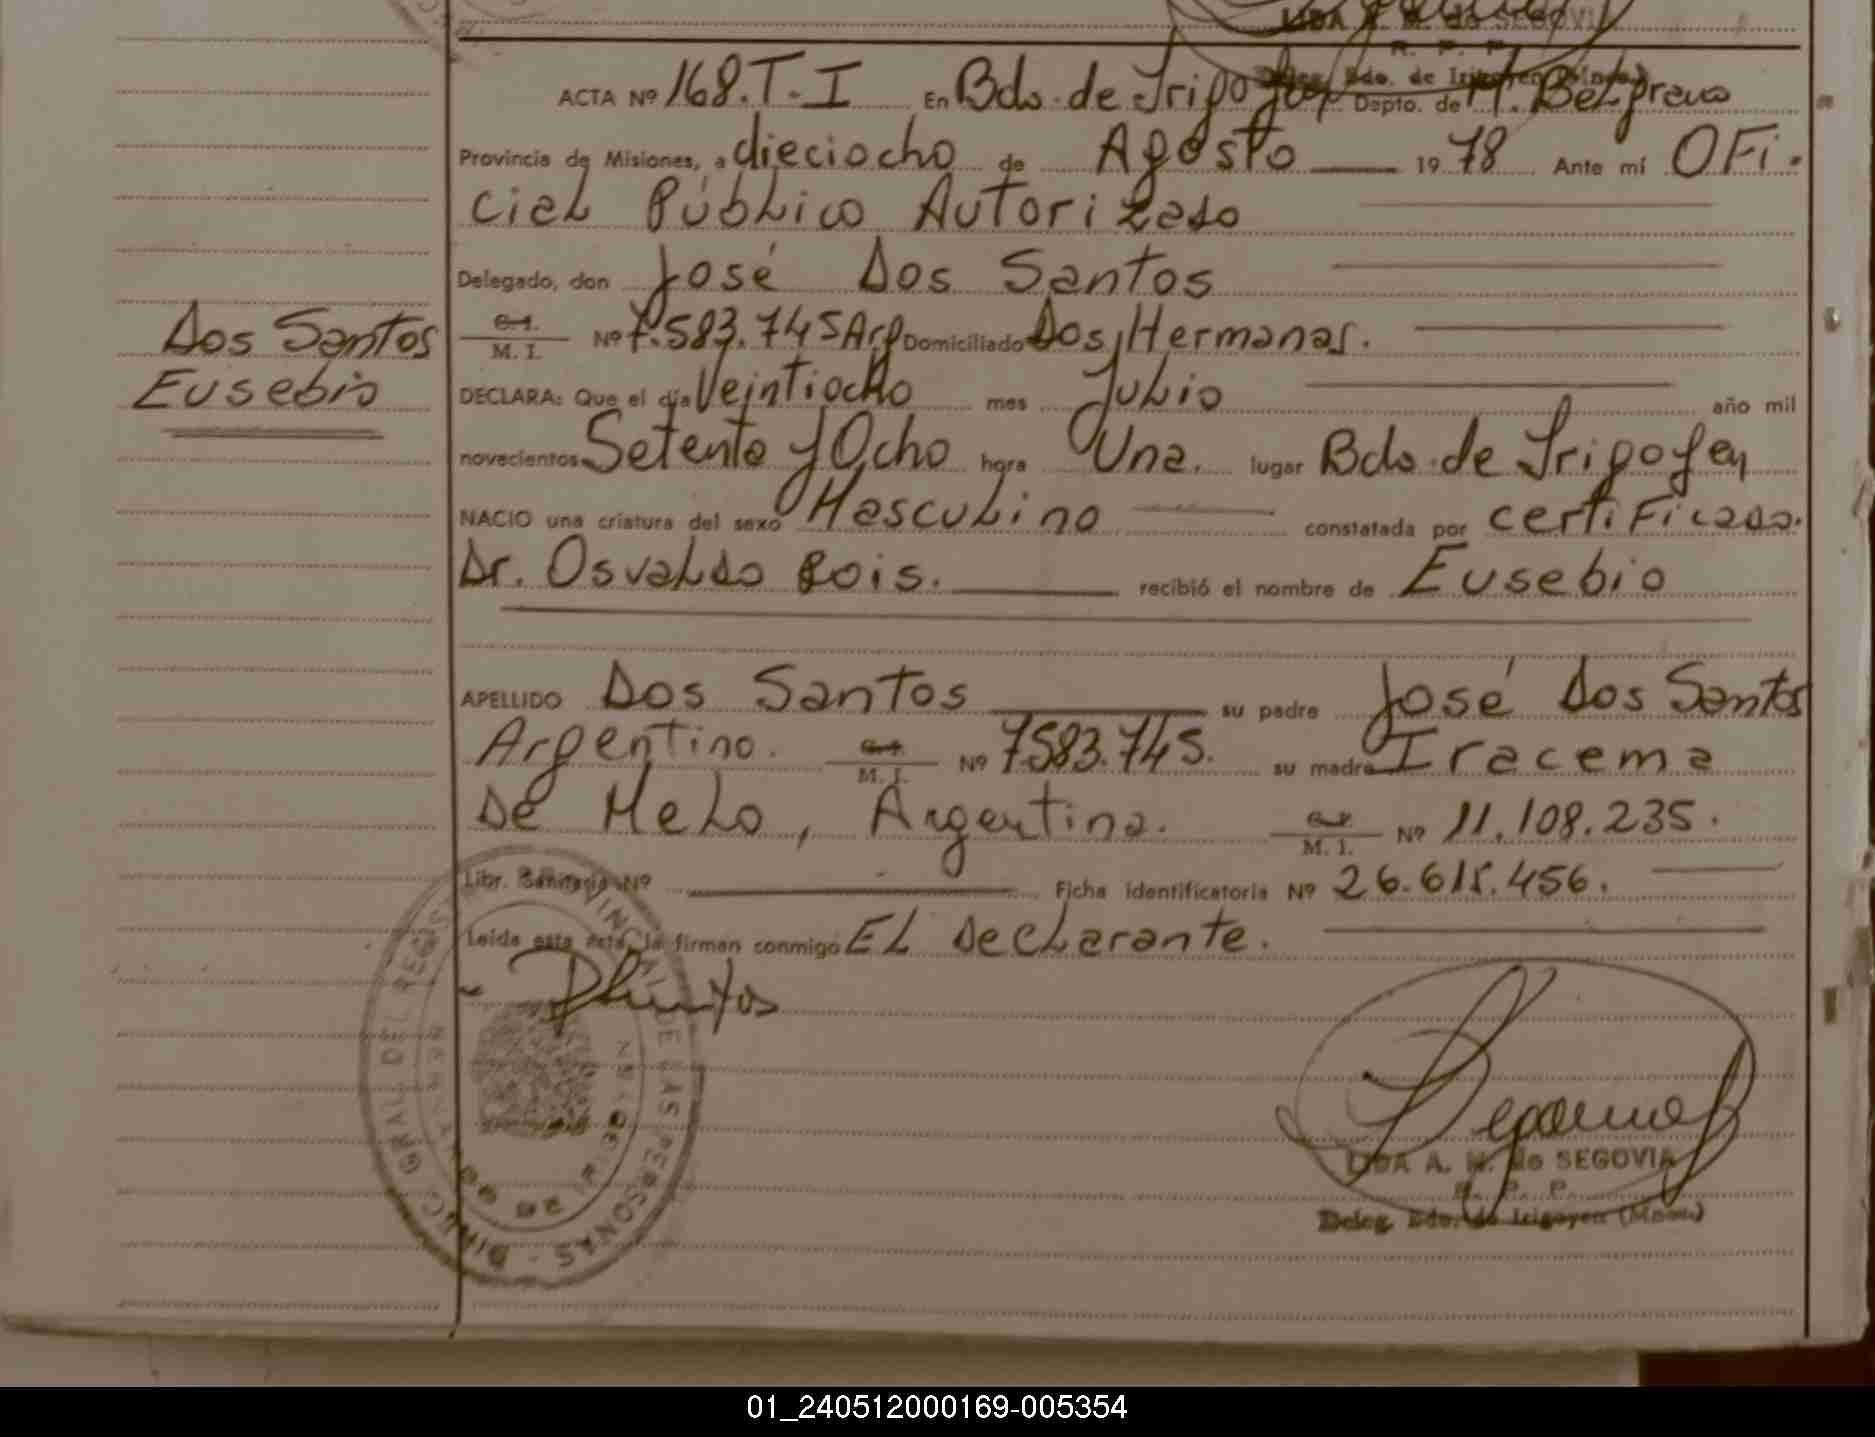 LIDA A. M. de SEGOVIA
R. P. P.
Deleg. Bdo. de Irigoyen (Mnes.)
ACTA Nº 168.T-I En Bdo. de Irigoyen Dpto. de M. Belgrano
Provincia de Misiones, a dieciocho de Agosto 1978 Ante mí OFi-
cial Público Autorizado
Delegado, don José Dos Santos
C.I. M. I. Nº 7.583.745 Arg Domiciliado Dos Hermanas.
Dos Santos
Eusebio
DECLARA: Que el día Veintiocho mes Julio año mil
novecientos Setenta y Ocho hora Una. lugar Bdo. de Irigoyen
NACIO una criatura del sexo Masculino constatada por certificado.
Dr. Osvaldo Rois. recibió el nombre de Eusebio
APELLIDO Dos Santos su padre José Dos Santos
Argentino. C.I. M. I. Nº 7583.745. su madre Iracema
De Melo, Argentina. C.I. M. I. Nº 11.108.235.
Libr. Sanitaria Nº Ficha identificatoria Nº 26.615.456.
Leída esta acta, la firman conmigo El Declarante.
DIRECC. GRAL. DEL REGISTRO PROVINCIAL DE LAS PERSONAS
LIDA A. M. de SEGOVIA
R. P. P.
Deleg. Bdo. de Irigoyen (Mnes.)
01_240512000169-005354